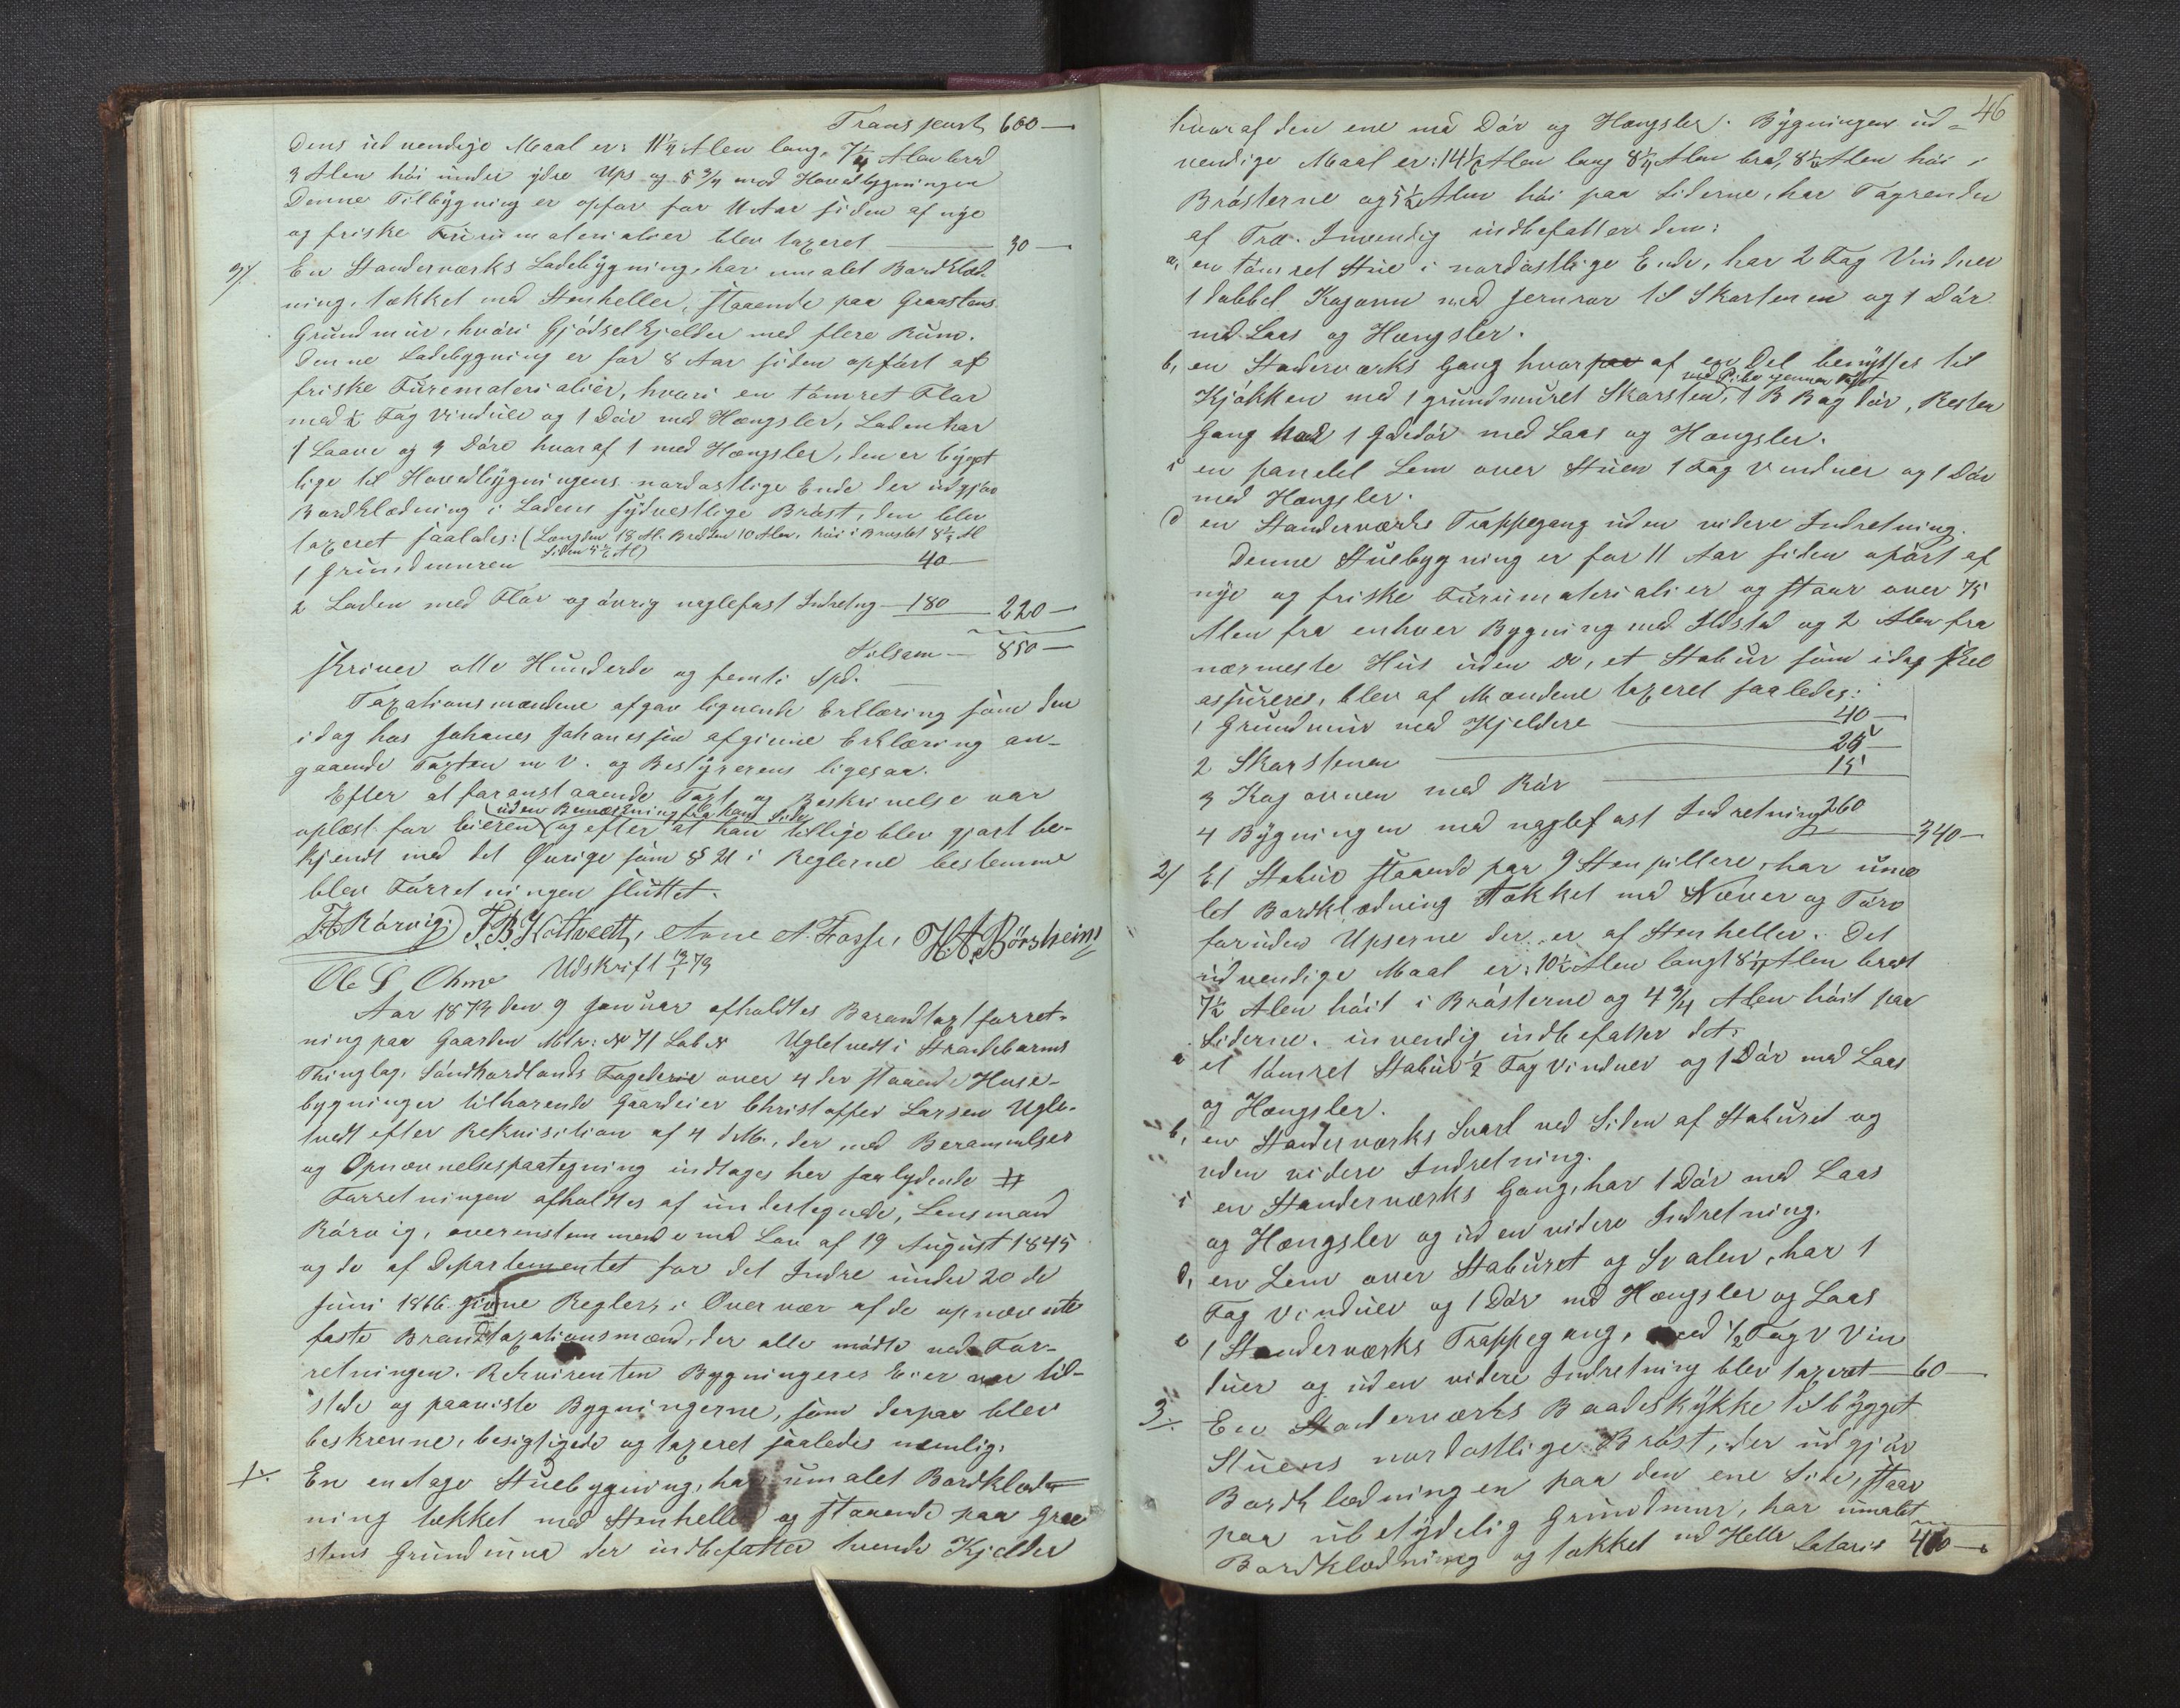 Transport 600 —
Dens udvendige Maal er: 11 1/4 Alen lang, 7 1/4 Alen bred
3 Alen høi under ydre Ups og 5 3/4 mod Hovedbygningen
Denne Tilbygning er opfør for 11 Aar siden af nye
og friske Furumaterialier blev taxeret — 30 —
3/. En Standerværks Ladebygning, har umalet Bordklæd-
ning, tækket med Stenheller, staaende paa Graastens
Grundmur, hvori Gjødselkjelder med flere Rum.
Denne Ladebygning er for 8 Aar siden opført af
friske Furematerialier, hvori en tømret Flor
med 1/2 Fag Vinduer og 1 Dør med Hængsler, Laden har
1 Laave og 3 Døre hvoraf 1 med Hængsler, den er bygget
lige til Hovedbygningens nordostlige Ende der udgjør
Bordklædning i Ladens sydvestlige Brøst, den blev
taxeret saaledes: (Længden 18 Al. Bredden 10 Alen, høi i Brøstet 8 1/2 Al
Siden 5 1/2 Al)
1 Grundmuren — 40 —
2 Laden med Flor og øvrig naglefast Indretng — 180 — 220 —
Tilsam — 850 —
skriver otte Hundrede og femti Spd.
Taxationsmændene afgav lignende Erklæring som den
idag hos Johanes Johanessen afgivne Erklæring an-
gaaende Taxten m V. og Bestyrerens ligesaa.
Efter at foranstaaende Taxt og Beskrivelse var
uden Bemærkning fra hans Side
oplæst for Eieren og efter at han tillige blev gjort be-
kjendt med det Øvrige som § 21 i Reglerne bestemme
blev Forretningen sluttet.
Rørvig. T. B. Kottvedt, Arne A. Fosse, H. A. Börsheim
Ole S. Ohme Udskrift 19/1 73
Aar 1873 den 9 Januar afholdtes Barandtaxtforret-
ning paa Gaarden Mtr: № 71 Lab № Ugletvedt i Strandebarms
Thinglag, Söndhordlands Fogederie over 4 der staaende Huse-
bygninger tilhørende Gaardeier Christoffer Larsen Ugle-
tvedt efter Rekvisition af 4 d.M., der med Berammelses
og Opnævnelsespaategning indtages her saalydende #
Forretningen afholdtes af undertegnede, Lensmand
Rørvig, overenstemmende med Lov af 19 August 1845
og de af Departementet for det Indre under 20de
Juni 1866 givne Regler, i Overvær af de opnævnte
faste Brandtaxationsmænd, der alle mødte ved For-
retningen. Rekvirenten Bygningeres Eier var til-
stede og paaviste Bygningerne, som derpaa blev
beskrevne, besigtigede og taxeret saaledes nemlig:
1/. En entages Stuebygning, har umalet Bordklæd-
ning tækket med Stenheller og staaende paa Graa-
stens Grundmur der indbefatter tvende Kjelder
46
hvoraf den ene med Dør og Hængsler. Bygningen ud-
vendige Maal er: 14 1/2 Alen lang 8 1/4 Alen bred, 8 1/2 Alen høi i
Brøsterne og 5 1/2 Alen høi paa Siderne, har Tagrender
af Træ. Invendig indbefatter den:
a, en tømret Stue i nordostlige Ende, har 2 Fag Vinduer
1 dobbel Kogovn med Jernrør til Skorstenen og 1 Dør
med Laas og Hængsler.
b, en Standerværks Gang hvor af en Del benyttes til
med Pibe gjennem Taget
Kjøkken med 1 grundmuret Skorsten, 1 B Bagdør, Resten
Gang har 1 Gadedør med Laas og Hængsler.
c en panelet Lem over Stuen 1 Fag Vinduer og 1 Dør
med Hængsler.
d en Standerværks Trappegang uden videre Indretning.
Denne Stuebygning er for 11 Aar siden opført af
nye og friske Furumaterialier og staar over 75
Alen fra enhver Bygning med Ildsted og 2 Alen fra
nærmeste Hus uden do, et Stabur som idag skal
assureres, blev af Mændene taxeret saaledes:
1 Grundmur med Kjeldere — 40 —
2 Skorstenen — 25 —
3 Kogovnen med Rør — 15
4 Bygningen med naglefast Indretning 260 — 340 —
2/ Et Stabur staaende paa 9 Stenpillere, har uma-
let Bordklædning Tækket med Næver og Törv
foruden Upserne der er af Stenheller. Det
udvendige Maal er: 10 1/2 Alen langt 8 1/4 Alen bredt
7 1/2 Alen høit i Brøsterne og 4 3/4 Alen høit paa
Siderne. invendig indbefatter det:
a et tømret Stabur 1/2 Fag Vinduer og 1 Dør med Laas
og Hængsler.
b, en Standerværks Svarl ved Siden af Staburet og
uden videre Indretning.
c en Standerværks Gang, har 1 Dør med Laas
og Hængsler og uden videre Indretning.
d, en Lem over Staburet og Svalen, har 1
Fag Vinduer og 1 Dør med Hængsler og Laas
e 1 Standerværks Trappegang, med 1/2 Fag V Vin
duer og uden videre Indretning blev taxeret — 60 —
3/. En Standerværks Baadeskykke tilbygget
Stuens nordostlige Brøst, der udgjør
Bordklædningen paa den ene Side, staar
paa ubetydelig Grundmur, har umalet
Bordklædning og tækket med Helle Lataris 400 —